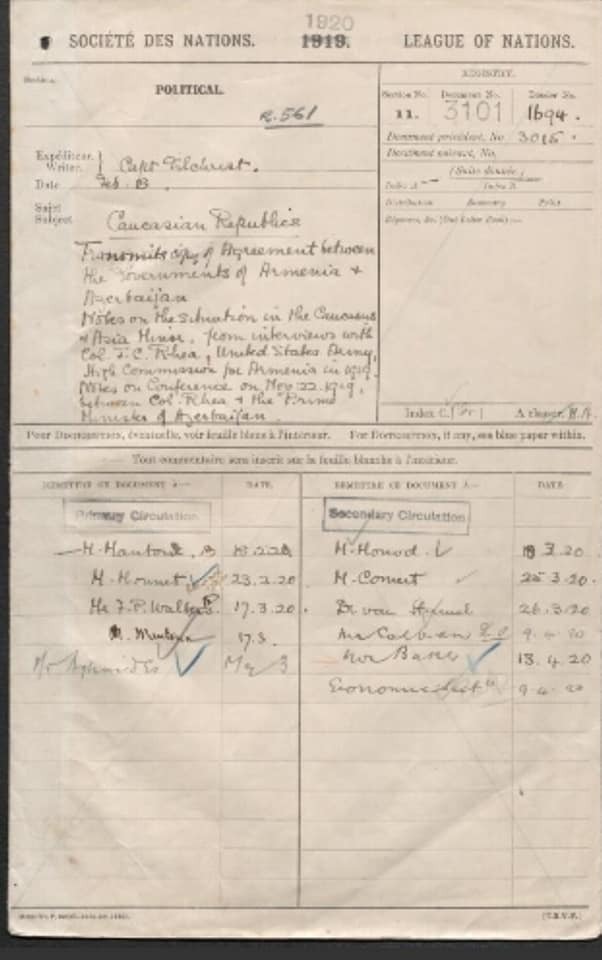 1920
SOCIÉTÉ DES NATIONS. 1919. LEAGUE OF NATIONS.
Section.
POLITICAL.
R.561
REGISTRY.
Section No. Document No. Dossier No.
11. 3101 1694.
Document précédent, No. 3015.
Document suivant, No.
Expéditeur. Writer. Capt Gilchrist.
Date Feb. 13.
Index A Index B
Distribution
Sujet
Subject Caucasian Republics
Transmits copy of Agreement between
the Governments of Armenia &
Azerbaijan
Notes on the situation in the Caucasus
& Asia Minor, from interviews with
Col. J.C. Rhea, United States Army,
High Commission for Armenia in 1919.
Notes on Conference on Nov. 22. 1919,
between Col. Rhea & the Prime
Minister of Azerbaijan.
Index C.
Pour Décisions, éventuelle, voir feuille blanche à l'intérieur. For Decisions, if any, see blue paper within.
Tout commentaire sera inscrit sur la feuille blanche à l'intérieur.
REMETTRE CE DOCUMENT À— DATE. REMETTRE CE DOCUMENT À— DATE
Primary Circulation Secondary Circulation
M. Mantoux 2.20 M. Monod. 3.20
M. Monnet 23.2.20 M. Comert 25.3.20
Mr F.P. Walters 17.3.20. Dr van Hamel 26.3.20
17.3. Mr Colban 9.4.20
Mr Baker 13.4.20
Economic Sectn 9.4.20